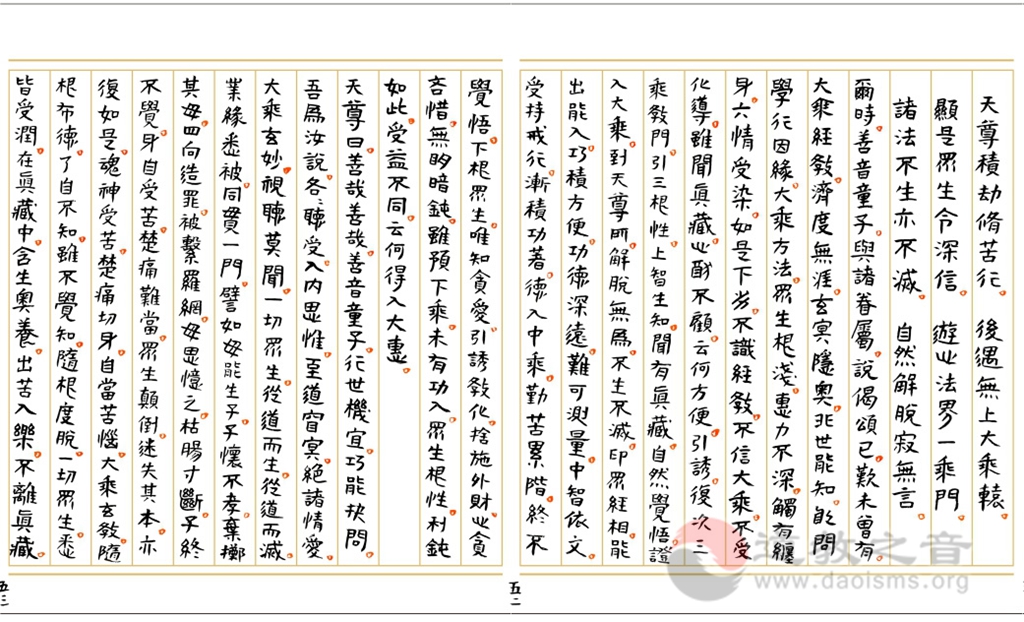 天尊積劫脩苦行　後遇無上大乘轅
顯是眾生令深信　遊心法界一乘門
諸法不生亦不滅　自然解脫寂無言
爾時善音童子與諸眷屬說偈頌已歎未曾有
大乘經教濟度無涯玄冥隱奧非世能知欲問
學行因緣大乘方法眾生根淺惠力不深觸有纏
身六情受染如是下劣不識經教不信大乘不受
化導雖聞真藏心酔不顧云何方便引誘復次三
乘教門引三根性上智生知聞有真藏自然覺悟證
入大乘到天尊所解脫無為不生不滅印眾經相能
出能入巧積方便功德深遠難可測量中智依文
受持戒行漸積功著德入中乘勤苦累階終不
五二
覺悟下根眾生唯知貪愛引誘教化捨施外財心貪
吝惜無明暗鈍雖預下乘未有功入眾生根性利鈍
如此受益不同云何得入大惠
天尊曰善哉善哉善音童子行世機宜巧能抉問
吾為汝說各各聽受入內思惟至道窅冥絕諸情愛
大乘玄妙視聽莫聞一切眾生從道而生從道而滅
業緣悉被同實一門譬如母能生子子懷不孝棄擲
其母四向造罪被繫羅網母思憶之枯腸寸斷子終
不覺身自受苦楚痛難當眾生顛倒迷失其本亦
復如是魂神受苦楚痛切身自當苦惱大乘玄教隨
根布德了自不知雖不覺知隨根度脫一切眾生悉
皆受潤在真藏中含生奧養出苦入樂不離真藏
五三
道教之音
www.daoisms.org